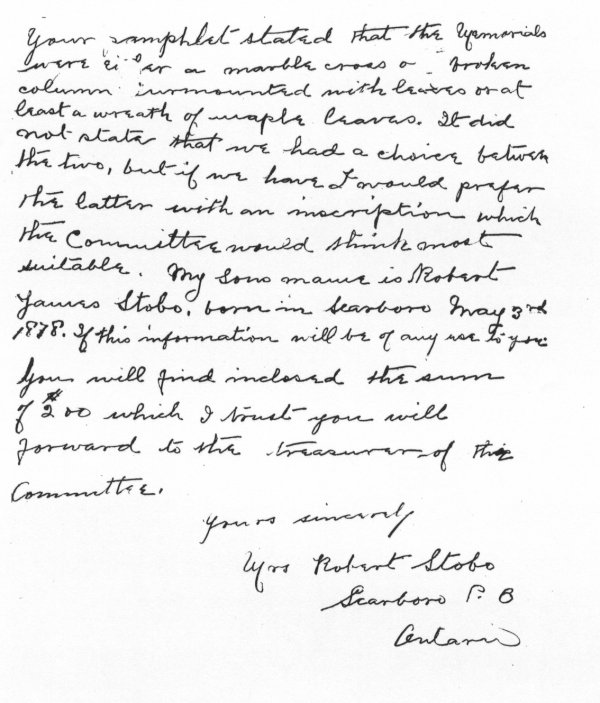 Your pamphlet stated that the Memorials
were either a marble cross or broken
column surmounted with leaves or at
least a wreath of maple leaves. It did
not state that we had a choice between
the two, but if we have I would prefer
the latter with an inscription which
the Committee would think most
suitable. My sons name is Robert
James Stobo, born in Scarboro May 3rd
1878. If this information will be of any use to you
You will find inclosed the sum
of $2 00 which I trust you will
forward to the treasurer of the
Committee.
Yours sincerely
Mrs Robert Stobo
Scarboro P. O
Ontario